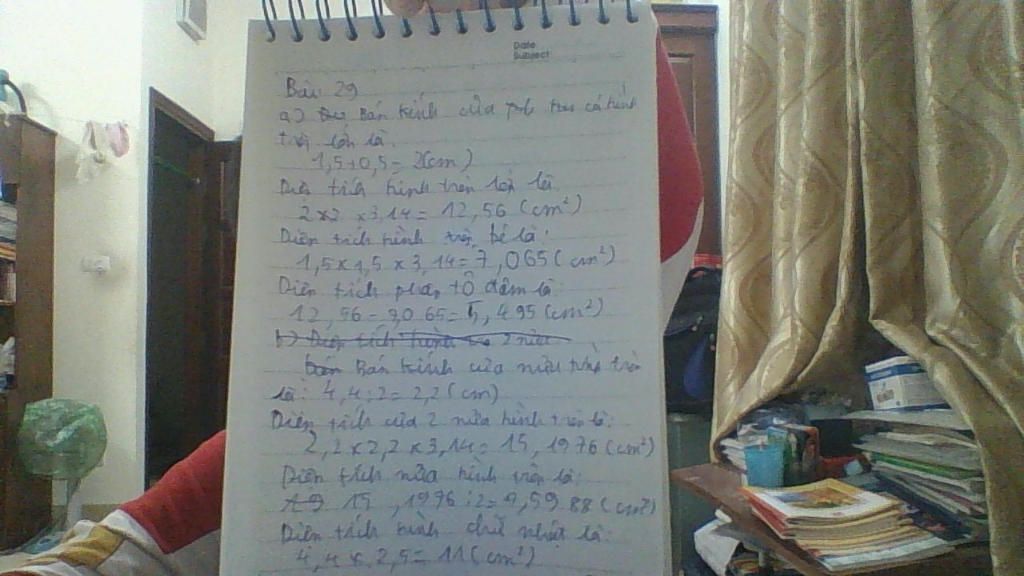 Date
Subject
Bài 29
a) Bán kính của hình
tròn lớn là:
1,5+0,5=2(cm)
Diện tích hình tròn lớn là
2×2 ×3,14=12,56 (cm²)
Diện tích hình tròn bé là:
1,5×1,5×3,14=7,065(cm²)
Diện tích phần tô đậm là:
12,56= 5,495(cm²)
b) Diện tích hình 2 nửa
Bán kính của nửa hình tròn
là: 4,4:2=2,2(cm)
Diện tích của 2 nửa hình tròn là:
2,2×2,2×3,14=15,1976(cm²)
Diện tích nửa hình tròn là:
15,1976:2= (cm²)
Diện tích hình chữ nhật là:
4,4×2,5=11(cm²)